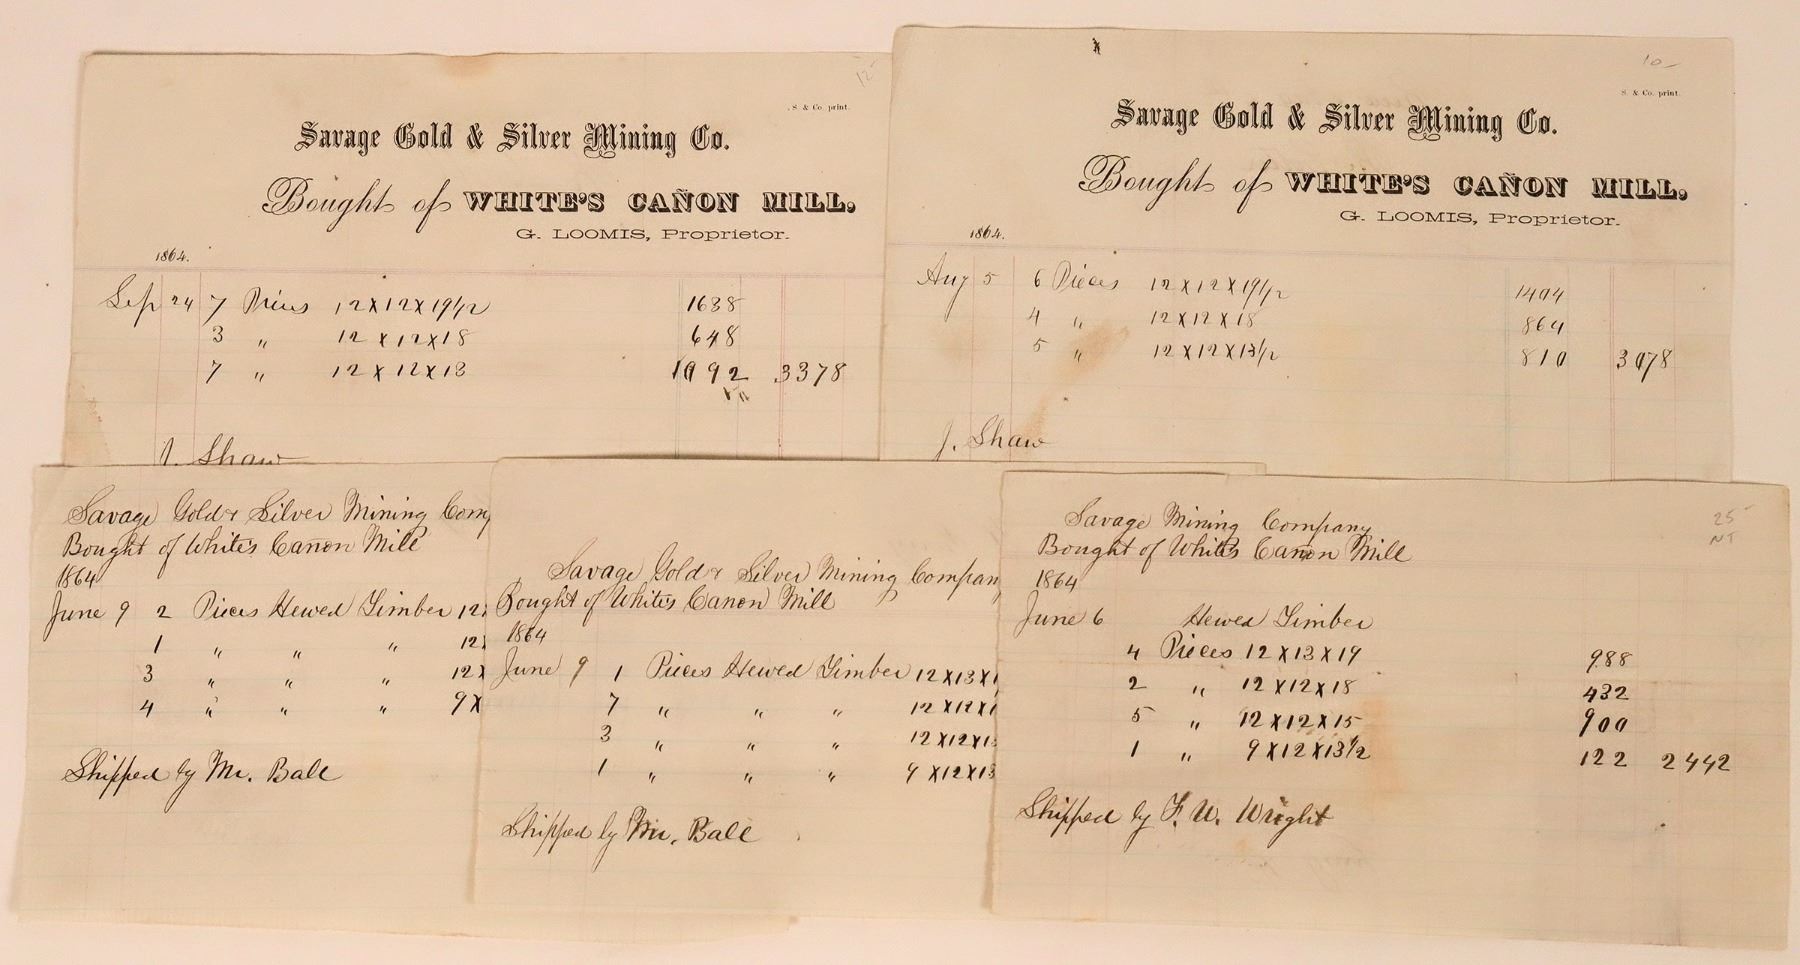 12-
S & Co. print.
Savage Gold & Silver Mining Co.
Bought of WHITE'S CAÑON MILL,
G. LOOMIS, Proprietor.
1864.
Sep 24 7 Pieces 12 x 12 x 19 1/2 1638
3 " 12 x 12 x 18 648
7 " 12 x 12 x 13 1092 3378
J. Shaw
10-
S. & Co. print.
Savage Gold & Silver Mining Co.
Bought of WHITE'S CAÑON MILL,
G. LOOMIS, Proprietor.
1864.
Aug 5 6 Pieces 12 x 12 x 19 1/2 1404
4 " 12 x 12 x 18 864
5 " 12 x 12 x 13 1/2 810 3078
J. Shaw
Savage Gold & Silver Mining Comp
Bought of White's Cañon Mill
1864
June 9 2 Pieces Hewed Timber 12
1 " " " 12
3 " " " 12 x
4 " " " 9 x
Shipped by Mr. Ball
Savage Gold & Silver Mining Compan
Bought of White's Canon Mill
1864
June 9 1 Pieces Hewed Timber 12 x 13 x 1
7 " " " 12 x 12 x 1
3 " " " 12 x 12 x 13
1 " " " 9 x 12 x 13
Shipped by Mr. Ball
25-
NT
Savage Mining Company
Bought of White's Canon Mill
1864
June 6 Hewed Timber
4 Pieces 12 x 13 x 19 988
2 " 12 x 12 x 18 432
5 " 12 x 12 x 15 900
1 " 9 x 12 x 13 1/2 122 2442
Shipped by F. W. Wright